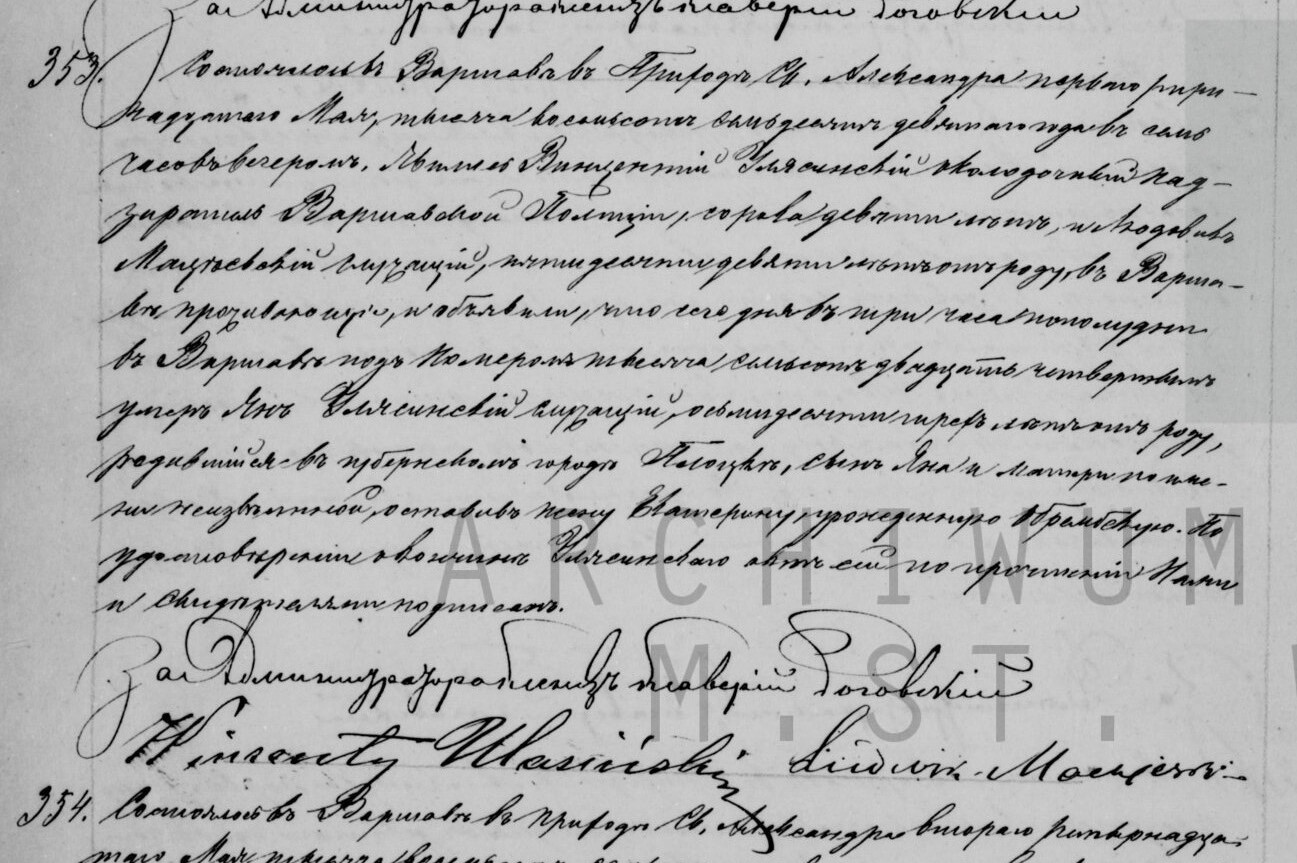 За Администратора Ксендзъ Ксаверій Роговскій
353. Состоялось въ Варшавѣ въ Приходѣ Св. Александра перваго /три-
надцатаго/ Мая, тысяча восемьсотъ семьдесятъ девятаго года въ семь
часовъ вечеромъ. Явились Винцентій Улясинскій околодочный над-
зиратель Варшавской Полиціи, сорока девяти лѣтъ, и Людовикъ
Мацѣевскій служащій, пятидесяти девяти лѣтъ отъ роду, въ Варша-
вѣ проживающіе, и объявили, что сего дня въ три часа пополудни
въ Варшавѣ подъ Номеромъ тысяча семьсотъ двадцать четвертымъ
умеръ Янъ Улясинскій служащій, осьмидесяти трехъ лѣтъ отъ роду,
родившійся въ губернскомъ городѣ Плоцкѣ, сынъ Яна и матери по име-
ни неизвѣстной, оставивъ жену Екатерину, урожденную Обрембскую. По
удостовѣреніи о кончинѣ Улясинскаго актъ сей по прочтеніи Нами
и свидѣтелями подписанъ.
За Администратора Ксендзъ Ксаверій Роговскій
Wincenty Ulasiński Ludwik Maciejewski
354. Состоялось въ Варшавѣ въ Приходѣ Св. Александра втораго /четырнадца-
таго/ Мая тысяча
ARCHIWUM
M.ST.